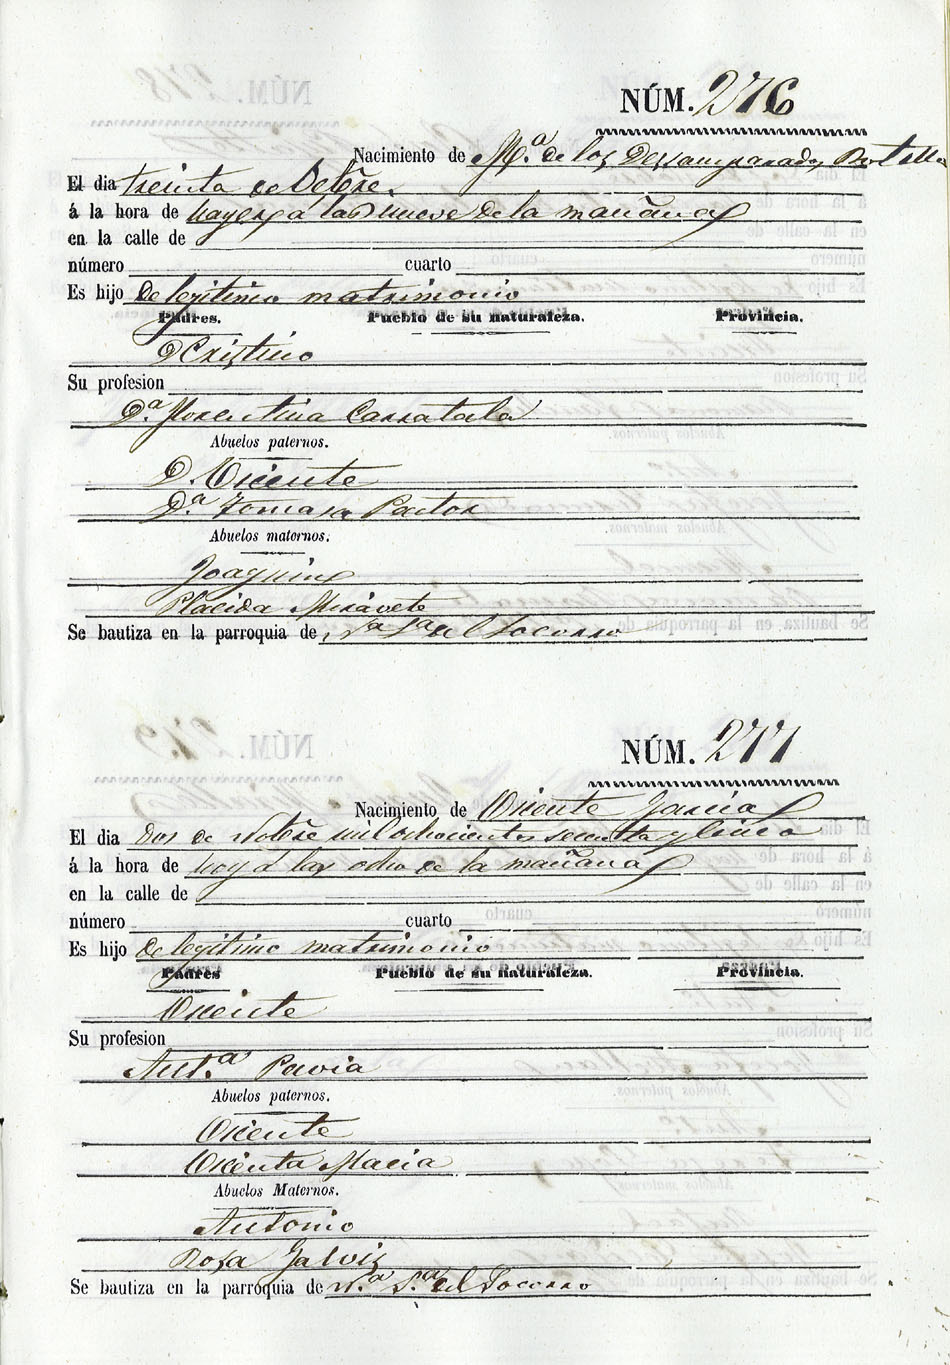 NÚM. 276
Nacimiento de M.ª de los Desamparados
El dia treinta de Octbre.
á la hora de hayer a las nueve de la mañana
en la calle de
número cuarto
Es hijo de legitimo matrimonio
Padres. Pueblo de su naturaleza. Provincia.
D Cristino
Su profesion
D.ª Florentina Carratala
Abuelos paternos.
D. Vicente
D.ª Tomasa Pastor
Abuelos maternos.
Joaquin
Placida Miravete
Se bautiza en la parroquia de Nª Sª del Socorro
NÚM. 277
Nacimiento de Vicente Garcia
El dia dos de Nobre mil ochocientos sesenta y cinco
á la hora de hoy á las ocho de la mañana
en la calle de
número cuarto
Es hijo de legitimo matrimonio
Padres Pueblo de su naturaleza. Provincia.
Vicente
Su profesion
Ant.ª Pavia
Abuelos paternos.
Vicente
Vicenta Macia
Abuelos Maternos.
Antonio
Rosa Galvis
Se bautiza en la parroquia de N.ª S.ª del Socorro